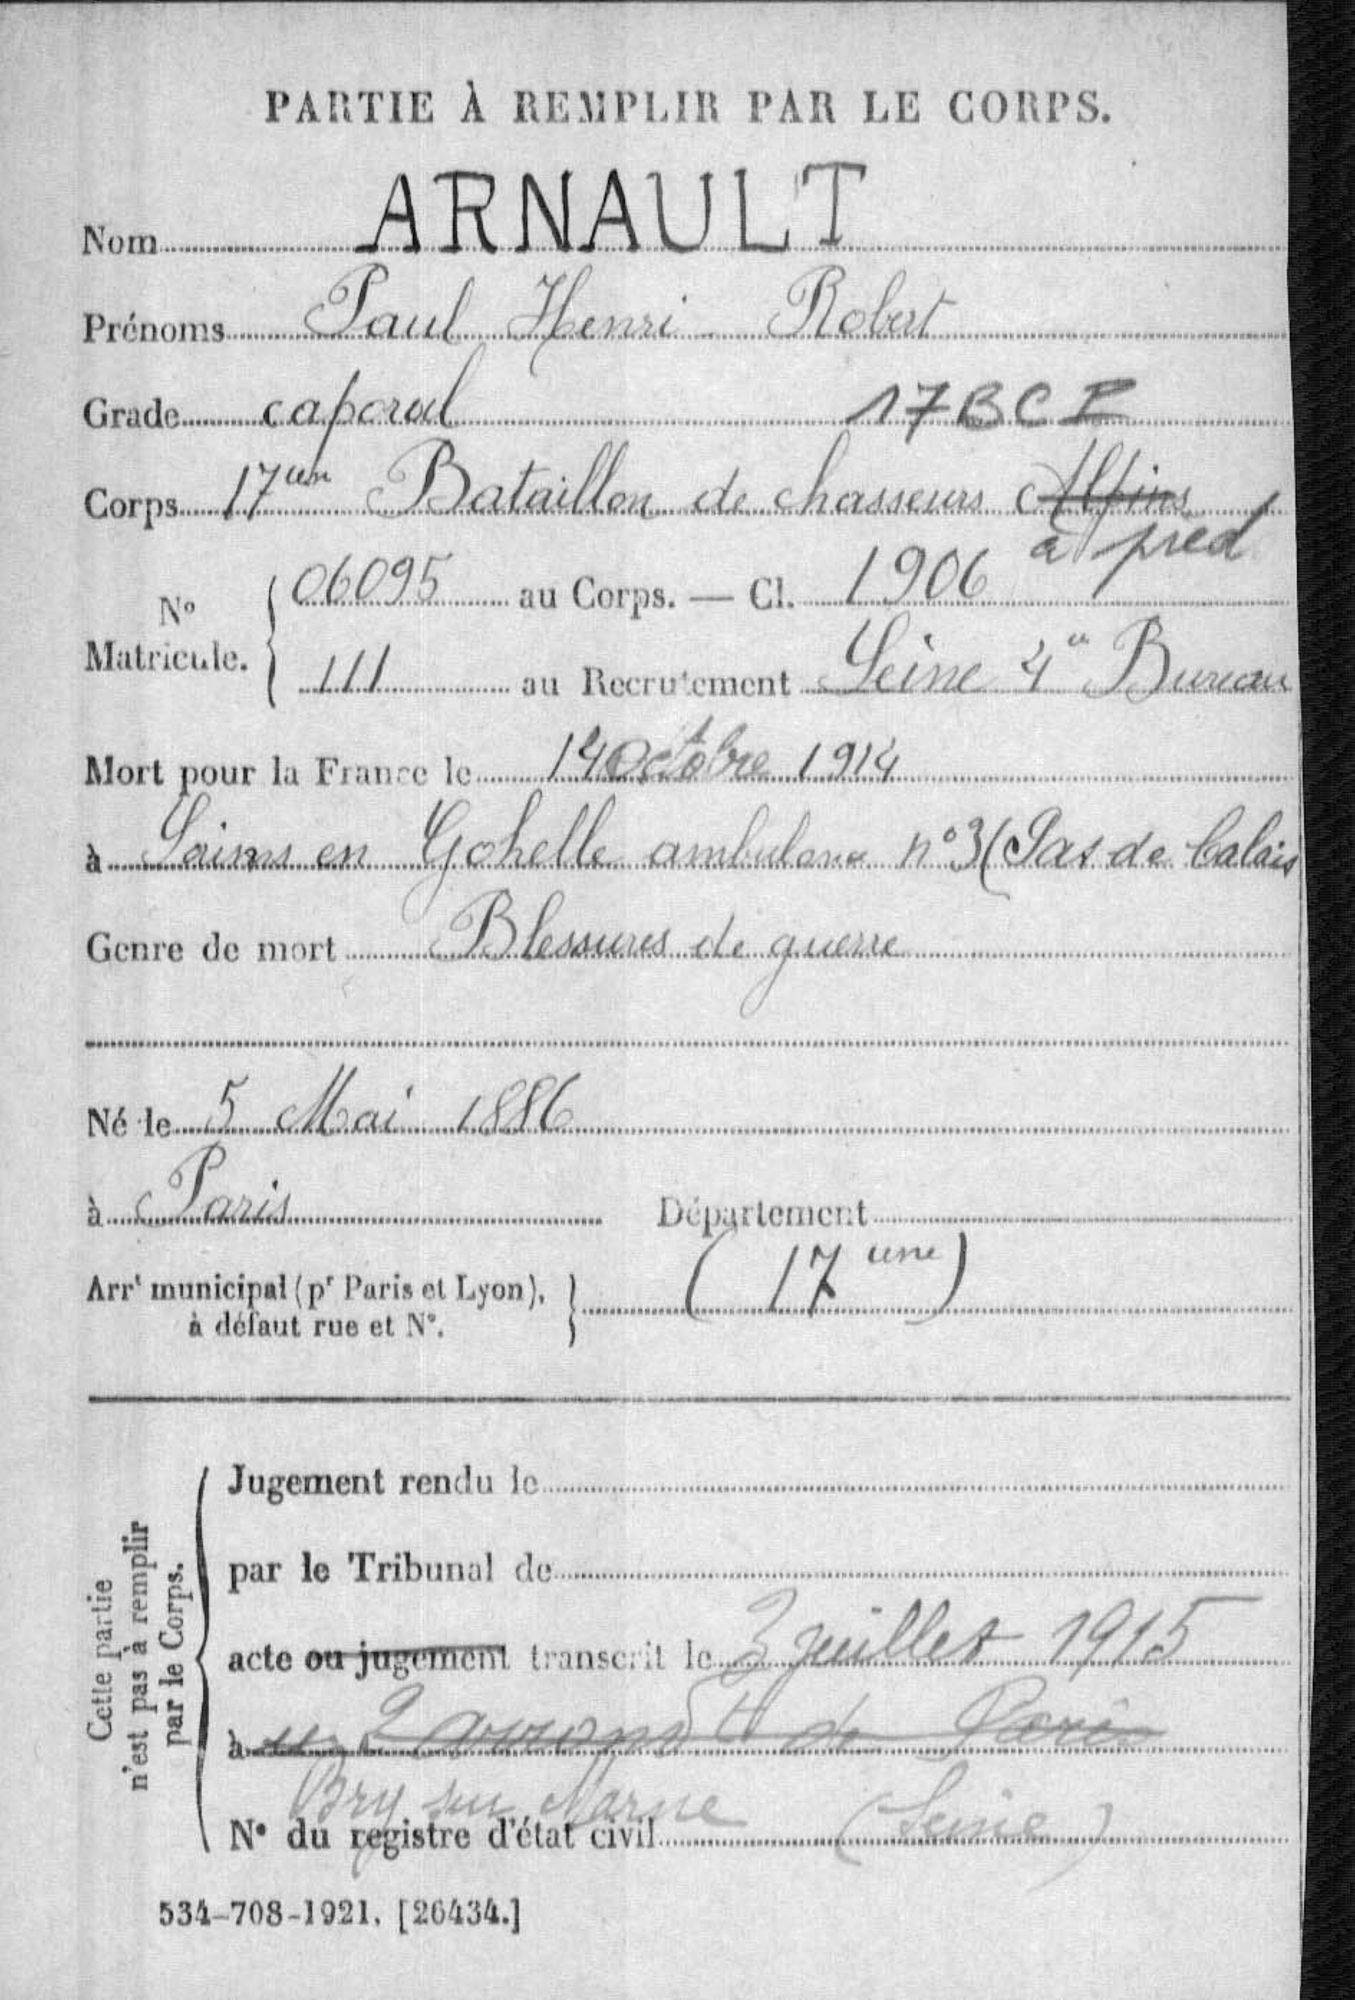 PARTIE À REMPLIR PAR LE CORPS.
Nom ARNAULT
Prénoms Paul Henri Robert
Grade caporal 17 BCP
Corps 17em Bataillon de chasseurs Alpins
à pied
N° Matricule. { 06095 au Corps. — Cl. 1906
111 au Recrutement Seine 4e Bureau
Mort pour la France le 14 Octobre 1914
à Sains en Gohelle ambulance n°3 (Pas de Calais
Genre de mort Blessures de guerre
Né le 5 Mai 1886
à Paris Département
Arrt municipal (pr Paris et Lyon), à défaut rue et N°. } (17eme)
Cette partie n'est pas à remplir par le Corps.
Jugement rendu le
par le Tribunal de
acte ou jugement transcrit le 3 juillet 1915
à 2 arrondt de Paris
Bry sur Marne (Seine)
N° du registre d'état civil
534-708-1921. [26434.]